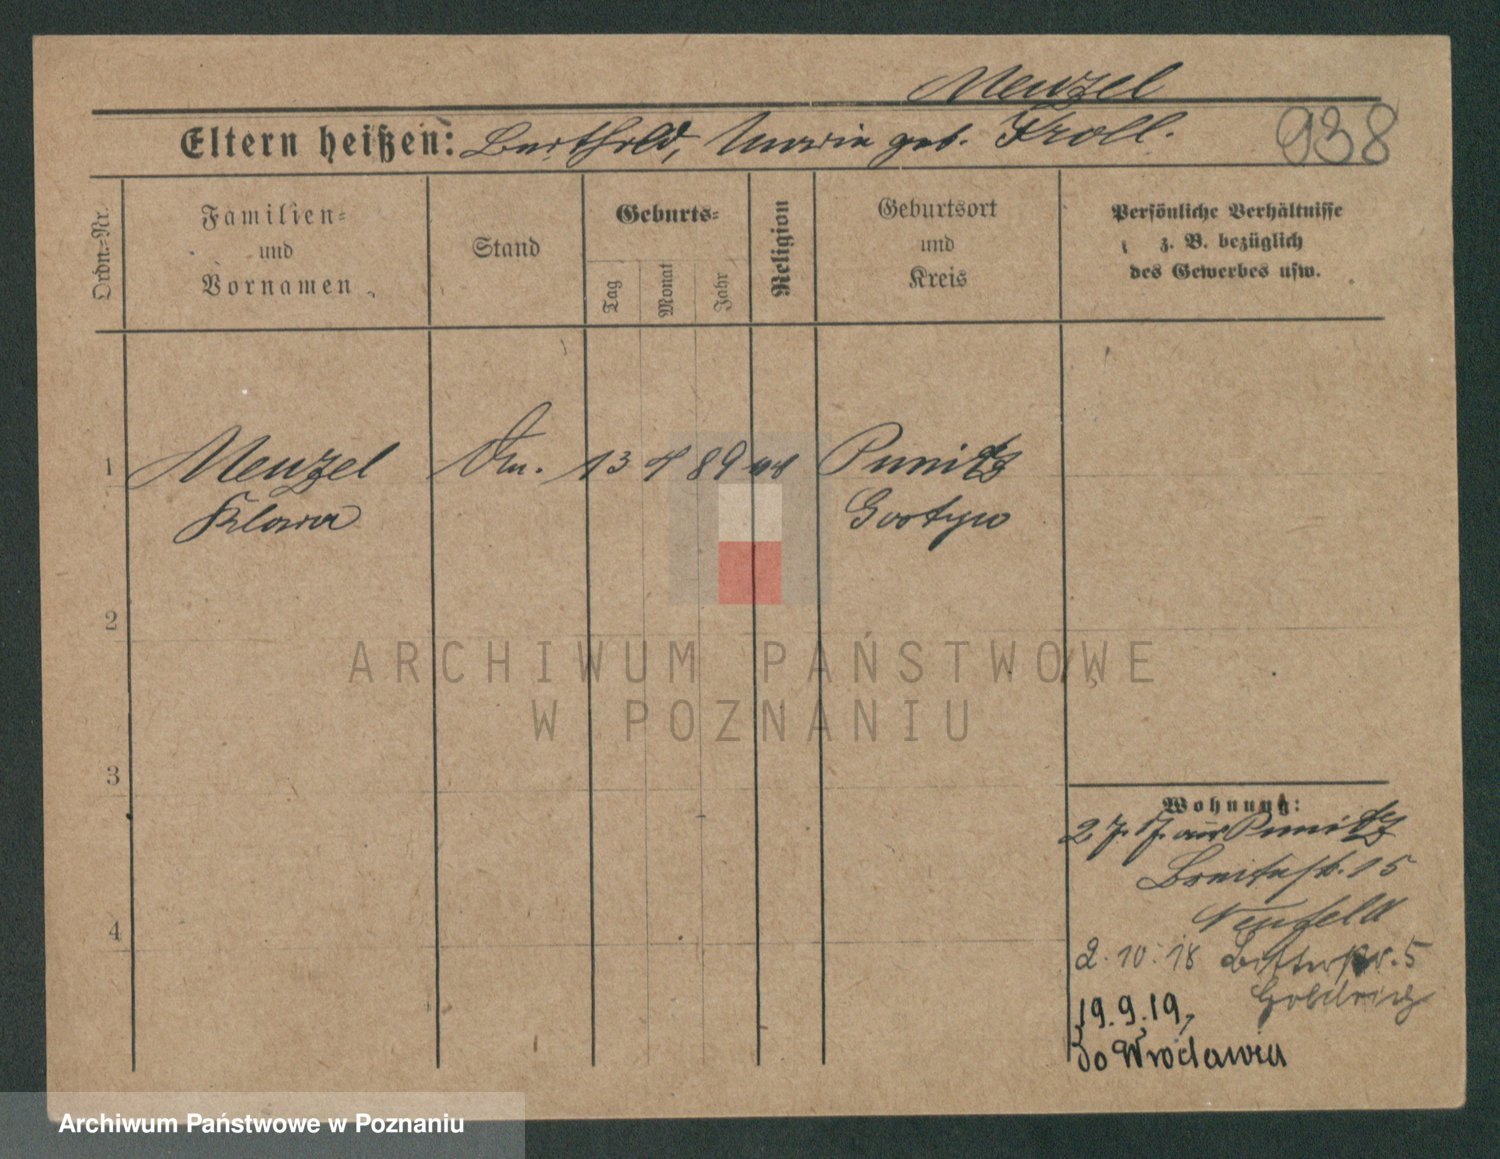 Menzel
Eltern heißen: Berthold, Maria geb. Kroll.
938
Ordn.-Nr.
Familien-
und
Vornamen
Stand
Geburts-
Tag
Monat
Jahr
Religion
Geburtsort
und
Kreis
Persönliche Verhältnisse
z. B. bezüglich
des Gewerbes usw.
1 Menzel 13 4 89 Punitz
Klara Gostyn
2
ARCHIWUM PAŃSTWOWE
W POZNANIU
3
4
Wohnung:
aus Punitz
Breitestr. 15
Neufeld
2.10.18 5
19.9.19,
Do Wrocławia
Archiwum Państwowe w Poznaniu